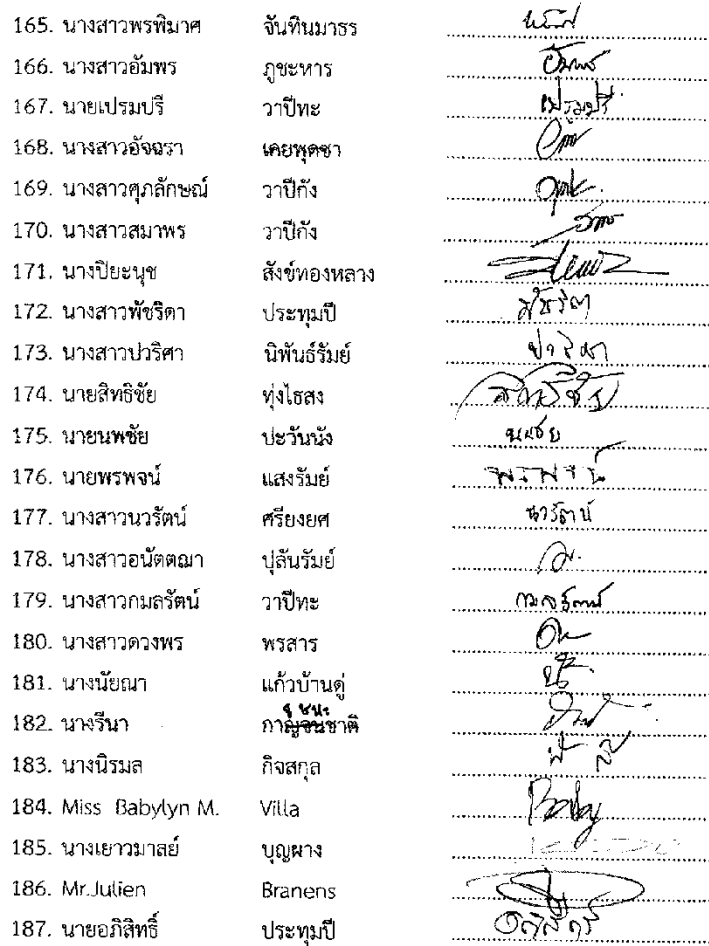 165. นางสาวพรพิมาศ จันทินมาธร
166. นางสาวอัมพร ภูชะหาร อัมพร
167. นายเปรมปรี วาปีทะ เปรมปรี
168. นางสาวอัจฉรา เคยพุดซา
169. นางสาวศุภลักษณ์ วาปีกัง
170. นางสาวสมาพร วาปีกัง
171. นางปิยะนุช สังข์ทองหลาง
172. นางสาวพัชริดา ประทุมปี พัชริดา
173. นางสาวปวริศา นิพันธ์รัมย์ ปวริศา
174. นายสิทธิชัย ทุ่งไธสง สิทธิชัย
175. นายนพชัย ปะวันนัง นพชัย
176. นายพรพจน์ แสงรัมย์ พรพจน์
177. นางสาวนวรัตน์ ศรียงยศ นวรัตน์
178. นางสาวอนัตตฌา ปุลันรัมย์
179. นางสาวกมลรัตน์ วาปีทะ กมลรัตน์
180. นางสาวดวงพร พรสาร
181. นางนัยณา แก้วบ้านดู่
182. นางรีนา กาญจนชาติ
183. นางนิรมล กิจสกุล
184. Miss Babylyn M. Villa Baby
185. นางเยาวมาลย์ บุญผาง
186. Mr.Julien Branens
187. นายอภิสิทธิ์ ประทุมปี